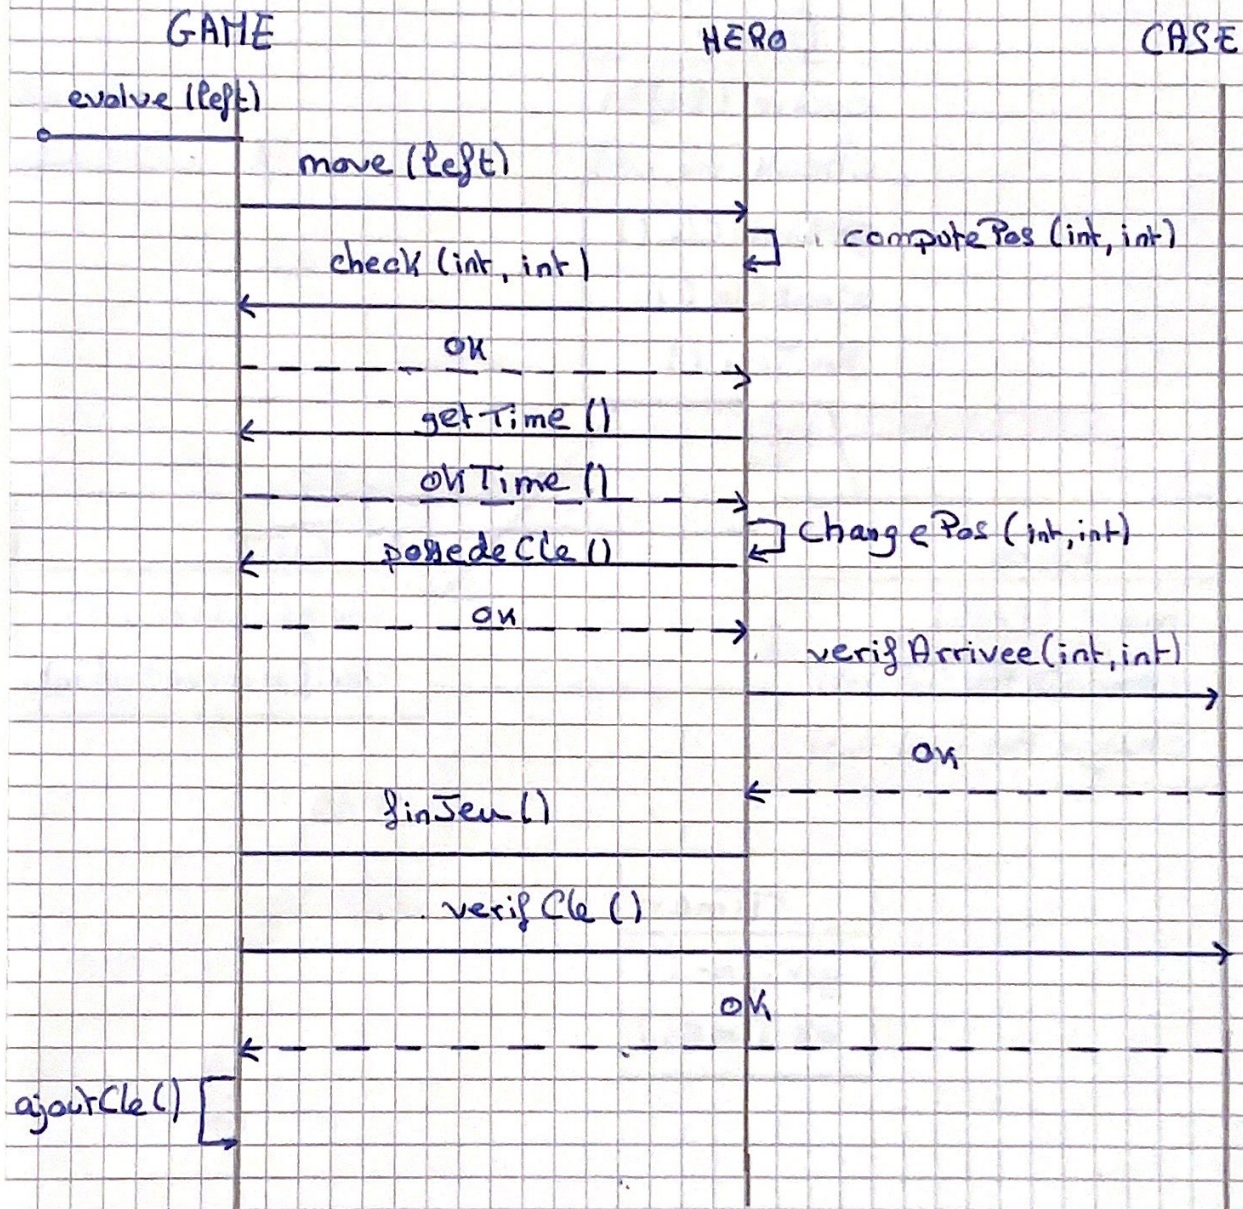 GAME HERO CASE
evolve (left)
move (left)
computePos (int, int)
check (int, int)
OK
getTime ()
OKTime ()
changePos (int,int)
possedeCle ()
OK
verifArrivee(int,int)
OK
finJeu ()
verifCle ()
OK
ajoutCle ()